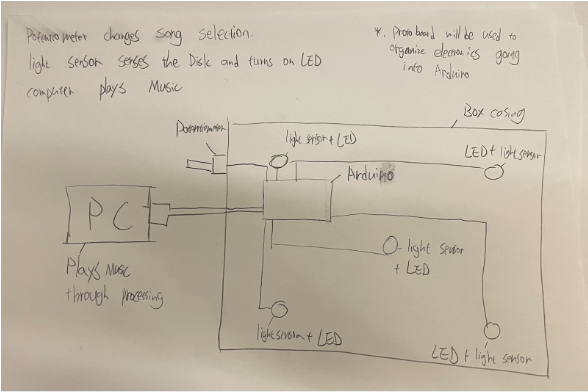 Potentiometer changes song selection.
light sensor senses the Disk and turns on LED
computer plays Music
*. Protoboard will be used to
organize electronics going
into Arduino
Box casing
Potentiometer
light sensor + LED
LED + light sensor
Arduino
PC
light sensor
+ LED
Plays Music
through processing
light sensor + LED
LED + light sensor